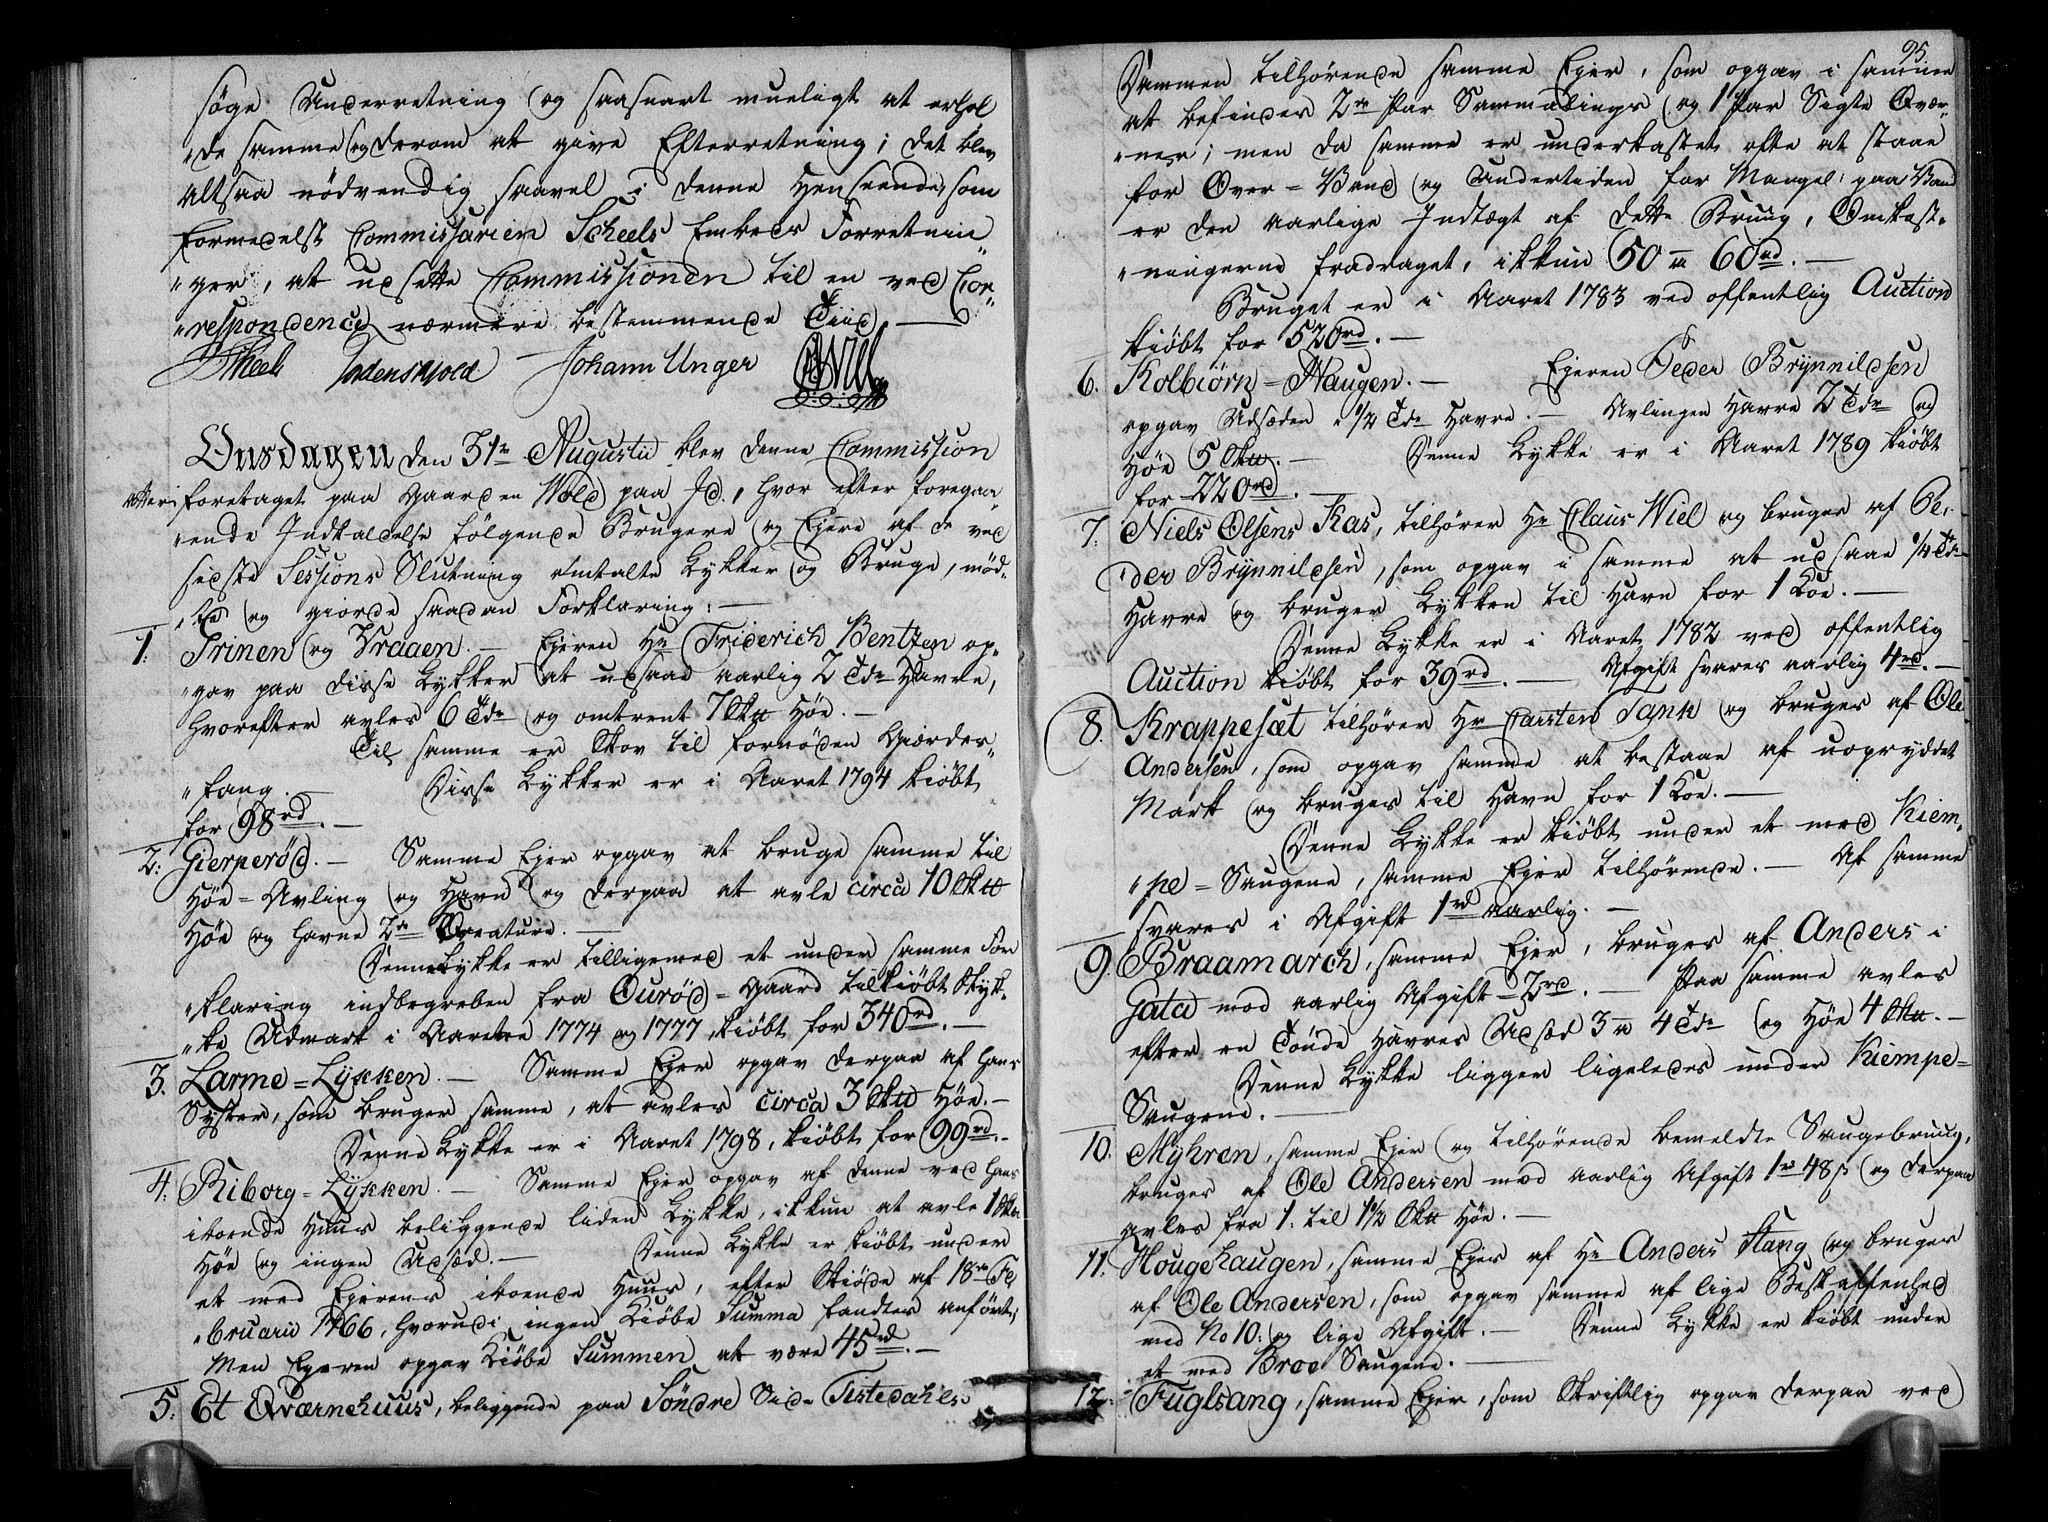 søge Underretning og saasnart mueligt at erhol
"de samme og derom at give Efterretning; det blev
altsaa nødvendig saavel i denne Henseende, som
formedelst Commissarien Scheels Embeds Forretnin
"ger, at udsette Commissionen til en ved Cor"
"respondence nærmere bestemmende Tiid
Scheel Tordenskjold Johann Unger
Onsdagen den 31te Augustii blev denne Commission
foretaget paa Gaarden Wold paa Id, hvor efter foregaa
"ende Indkaldelse følgende Brugere og Ejere af de ved
sidste Sessions Slutning omtalte Løkker og Bruge, mød"
"te og giorde saadan Forklaring:
1. Trinen og Vraaen. Ejeren Hr Friderich Bentzen op"
"gav paa disse Løkker at udsaae aarlig 2 Tdr Havre,
hvorefter avles 6 Tdr og omtrent 7 Sk℔ Høe.
Til samme er Skov til fornøden Gjerdes"
"fang. Disse Løkker er i Aaret 1794 kiøbt
for 98rd.
2. Gierperød. Samme Ejer opgav at bruge samme til
Høe=Avling og Havn og derpaa at avle circa 10 Sk℔
Høe og havne 2de Creature.
Denne Løkke er tilligemed et under samme For
"klaring indbegreben fra Ourød=Gaard tilkiøbt Styk"
"ke Udmark i Aarene 1774 og 1777 kiøbt for 340rd.
3. Larme=Lykken. Samme Ejer opgav derpaa af hans
Syster, som bruger samme, at avles circa 3 Sk℔ Høe.
Denne Løkke er i Aaret 1798, kiøbt for 99rd.
4. Riborg=Lykken. Samme Ejer opgav af denne ved hans
iboende Huus beliggende liden Løkke, ikkun at avle 1 Sk℔
Høe og ingen Udsæd. Denne Løkke er kiøbt under
et med Ejerens iboende Huus, efter Skiøde af 18de Fe
"bruarii 1766, hvorudi ingen Kiøbe Summa fandtes anført,
Men Ejeren opgav Kiøbe Summen at være 45rd.
5. Et Qværnehuus, beliggende paa Søndre Side Tistedahls
95
Dammen tilhørende samme Ejer, som opgav i samme
at befindes 2de Par Sammalings og 1 Par Sigte Qvær"
"ner; men da samme er underkastet ofte at staae
for Over=Vand og Undertiden for Mangel paa Vand
er den aarlige Indtægt af dette Brug, Omkost"
"ningerne fradraget, ikkun 50 a 60rd.
Bruget er i Aaret 1783 ved offentlig Auction
kiøbt for 520rd.
6. Kolbiørn=Haugen. Ejeren Peder Brynnildsen
opgav Udsæden 1/2 Tdr Havre. Avlingen Havre 2 Tdr og
Høe 5 Sk℔. Denne Løkke er i Aaret 1789 kiøbt
for 220rd.
7. Niels Olsens Kas, tilhører Hr Claus Wiel og bruges af Pe"
"der Brynnildsen, som opgav i samme at udsaae 1/4 Tdr
Havre og bruger Løkken til Havn for 1 Koe.
Denne Løkke er i Aaret 1782 ved offentlig
Auction kiøbt for 39rd. Afgift svares aarlig 4rd.
8. Krappesæt tilhører Hr Carsten Tank og bruges af Ole
Andersen, som opgav samme at bestaae af uopryddet
Mark og bruges til Havn for 1 Koe.
Denne Løkke er kiøbt under et med Kiem"
"pe=Saugene, samme Ejer tilhørende. Af samme
svares i Afgift 1rd aarlig.
9. Braamarch, samme Ejer, bruges af Anders i
Gata mod aarlig Afgift 3rd. Paa samme avles
efter en Tønde Havres Udsæd 3 a 4 Tdr og Høe 4 Sk℔.
Denne Løkke ligger ligeledes under Kiempe=
Saugene.
10. Myhren, samme Ejer og tilhørende bemeldte Saugebrug,
bruges af Ole Andersen mod aarlig Afgift 1rd 48s og derpaa
avles fra 1. til 1 1/2 Sk℔ Høe.
11. Hougehaugen, samme Ejer af Hr Anders Stang og bruges
af Ole Andersen, som opgav samme af lige Beskaffenhed
med No 10. og lige Afgift. Denne Løkke er kiøbt under
et med Broe Saugene.
12. Fuglsang, samme Ejer, som Skriftlig opgav derpaa ved